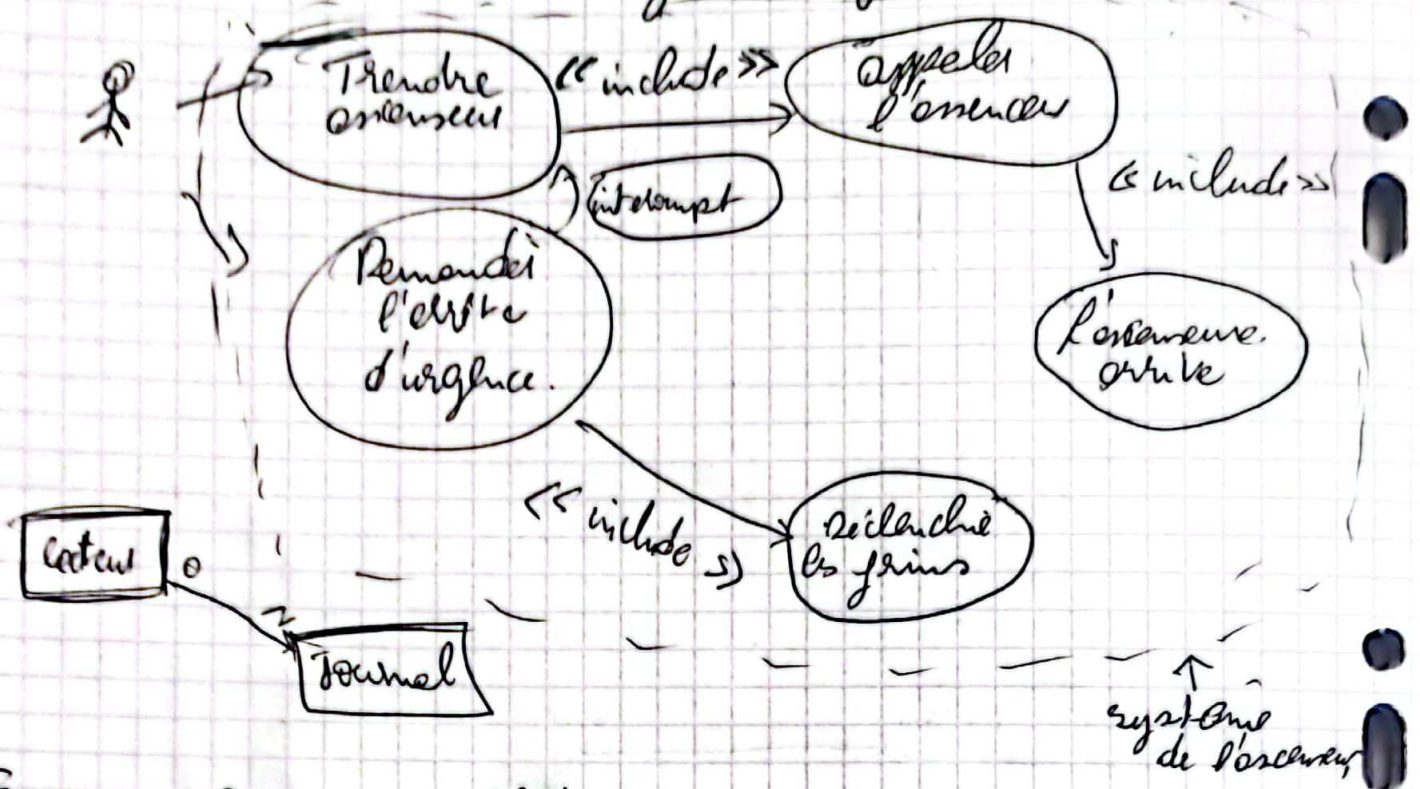 Prendre
ascenseur
<< include >>
appeler
l'assenceur
<< include >>
interompt
Demander
l'arrête
d'urgence.
l'ascenseure.
arrive
<< include >>
Déclenché
les freins
Lecteur
0
Journal
système
de l'ascenseur